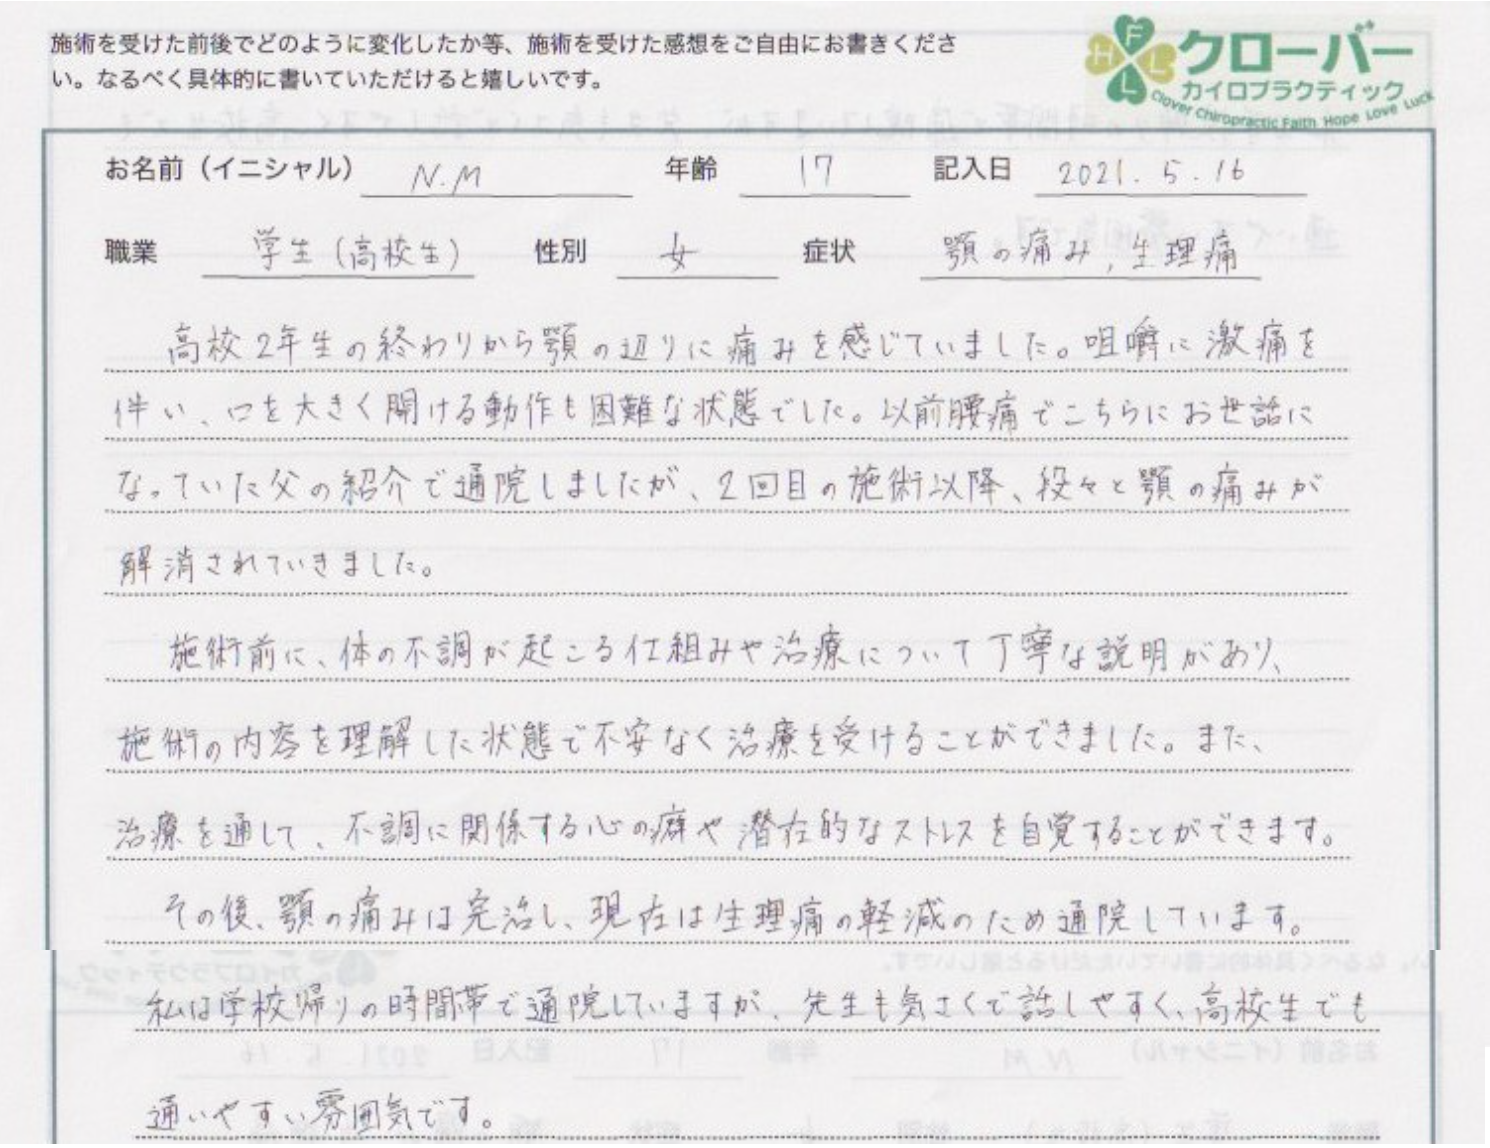 施術を受けた前後でどのように変化したか等、施術を受けた感想をご自由にお書きくださ
い。なるべく具体的に書いていただけると嬉しいです。
F H L L
クローバー
カイロプラクティック
Clover Chiropractic Faith Hope Love Luck
お名前（イニシャル） N.M 年齢 17 記入日 2021.5.16
職業 学生(高校生) 性別 女 症状 顎の痛み,生理痛
高校2年生の終わりから顎の辺りに痛みを感じていました。咀嚼に激痛を
伴い、口を大きく開ける動作も困難な状態でした。以前腰痛でこちらにお世話に
なっていた父の紹介で通院しましたが、2回目の施術以降、段々と顎の痛みが
解消されていきました。
施術前に、体の不調が起こる仕組みや治療について丁寧な説明があり、
施術の内容を理解した状態で不安なく治療を受けることができました。また、
治療を通して、不調に関係する心の癖や潜在的なストレスを自覚することができます。
その後、顎の痛みは完治し、現在は生理痛の軽減のため通院しています。
私は学校帰りの時間帯で通院していますが、先生も気さくで話しやすく、高校生でも
通いやすい雰囲気です。